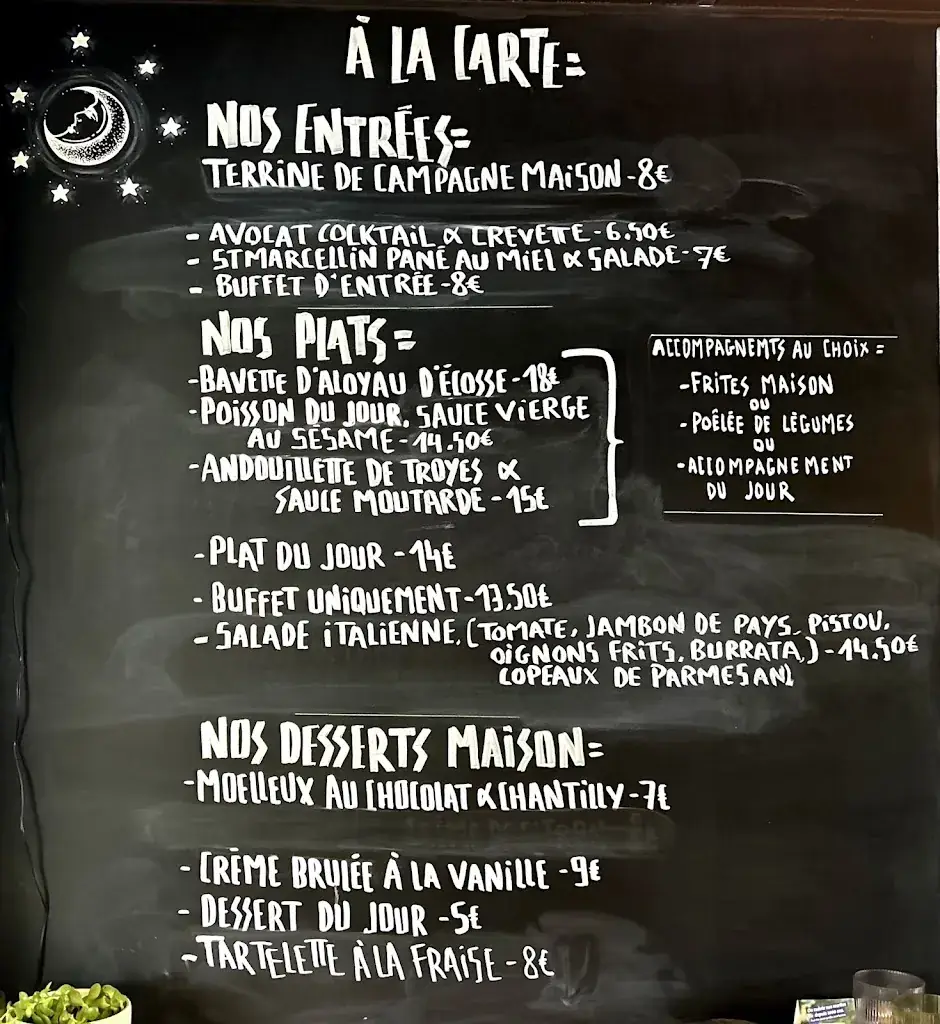 À LA CARTE =
NOS ENTRÉES =
TERRINE DE CAMPAGNE MAISON - 8€
- AVOCAT COCKTAIL & CREVETTE - 6.50€
- ST MARCELLIN PANÉ AU MIEL & SALADE - 7€
- BUFFET D'ENTRÉE - 8€
NOS PLATS =
- BAVETTE D'ALOYAU D'ÉCOSSE - 18€
- POISSON DU JOUR, SAUCE VIERGE
AU SÉSAME - 14.50€
- ANDOUILLETTE DE TROYES &
SAUCE MOUTARDE - 15€
ACCOMPAGNEMTS AU CHOIX =
- FRITES MAISON
OU
- POÊLÉE DE LÉGUMES
OU
- ACCOMPAGNEMENT
DU JOUR
- PLAT DU JOUR - 14€
- BUFFET UNIQUEMENT - 13,50€
- SALADE ITALIENNE. (TOMATE, JAMBON DE PAYS, PISTOU,
OIGNONS FRITS, BURRATA,) - 14.50€
COPEAUX DE PARMESAN)
NOS DESSERTS MAISON =
- MOELLEUX AU CHOCOLAT & CHANTILLY - 7€
- CRÈME BRULÉE À LA VANILLE - 9€
- DESSERT DU JOUR - 5€
- TARTELETTE À LA FRAISE - 8€